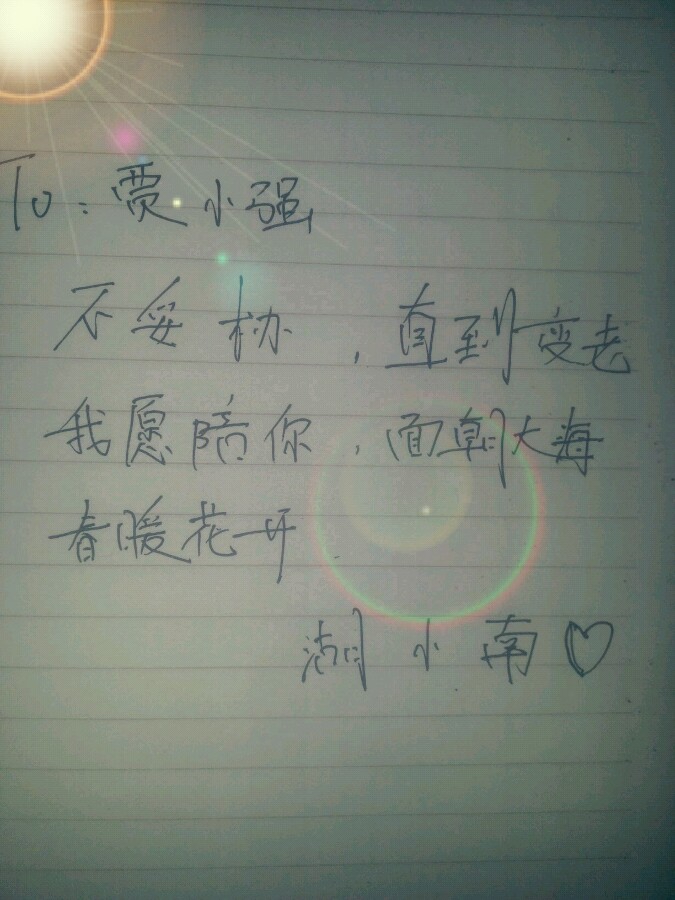 To：贾小强
不妥协，直到变老
我愿陪你，面朝大海
春暖花开
湖小南♡